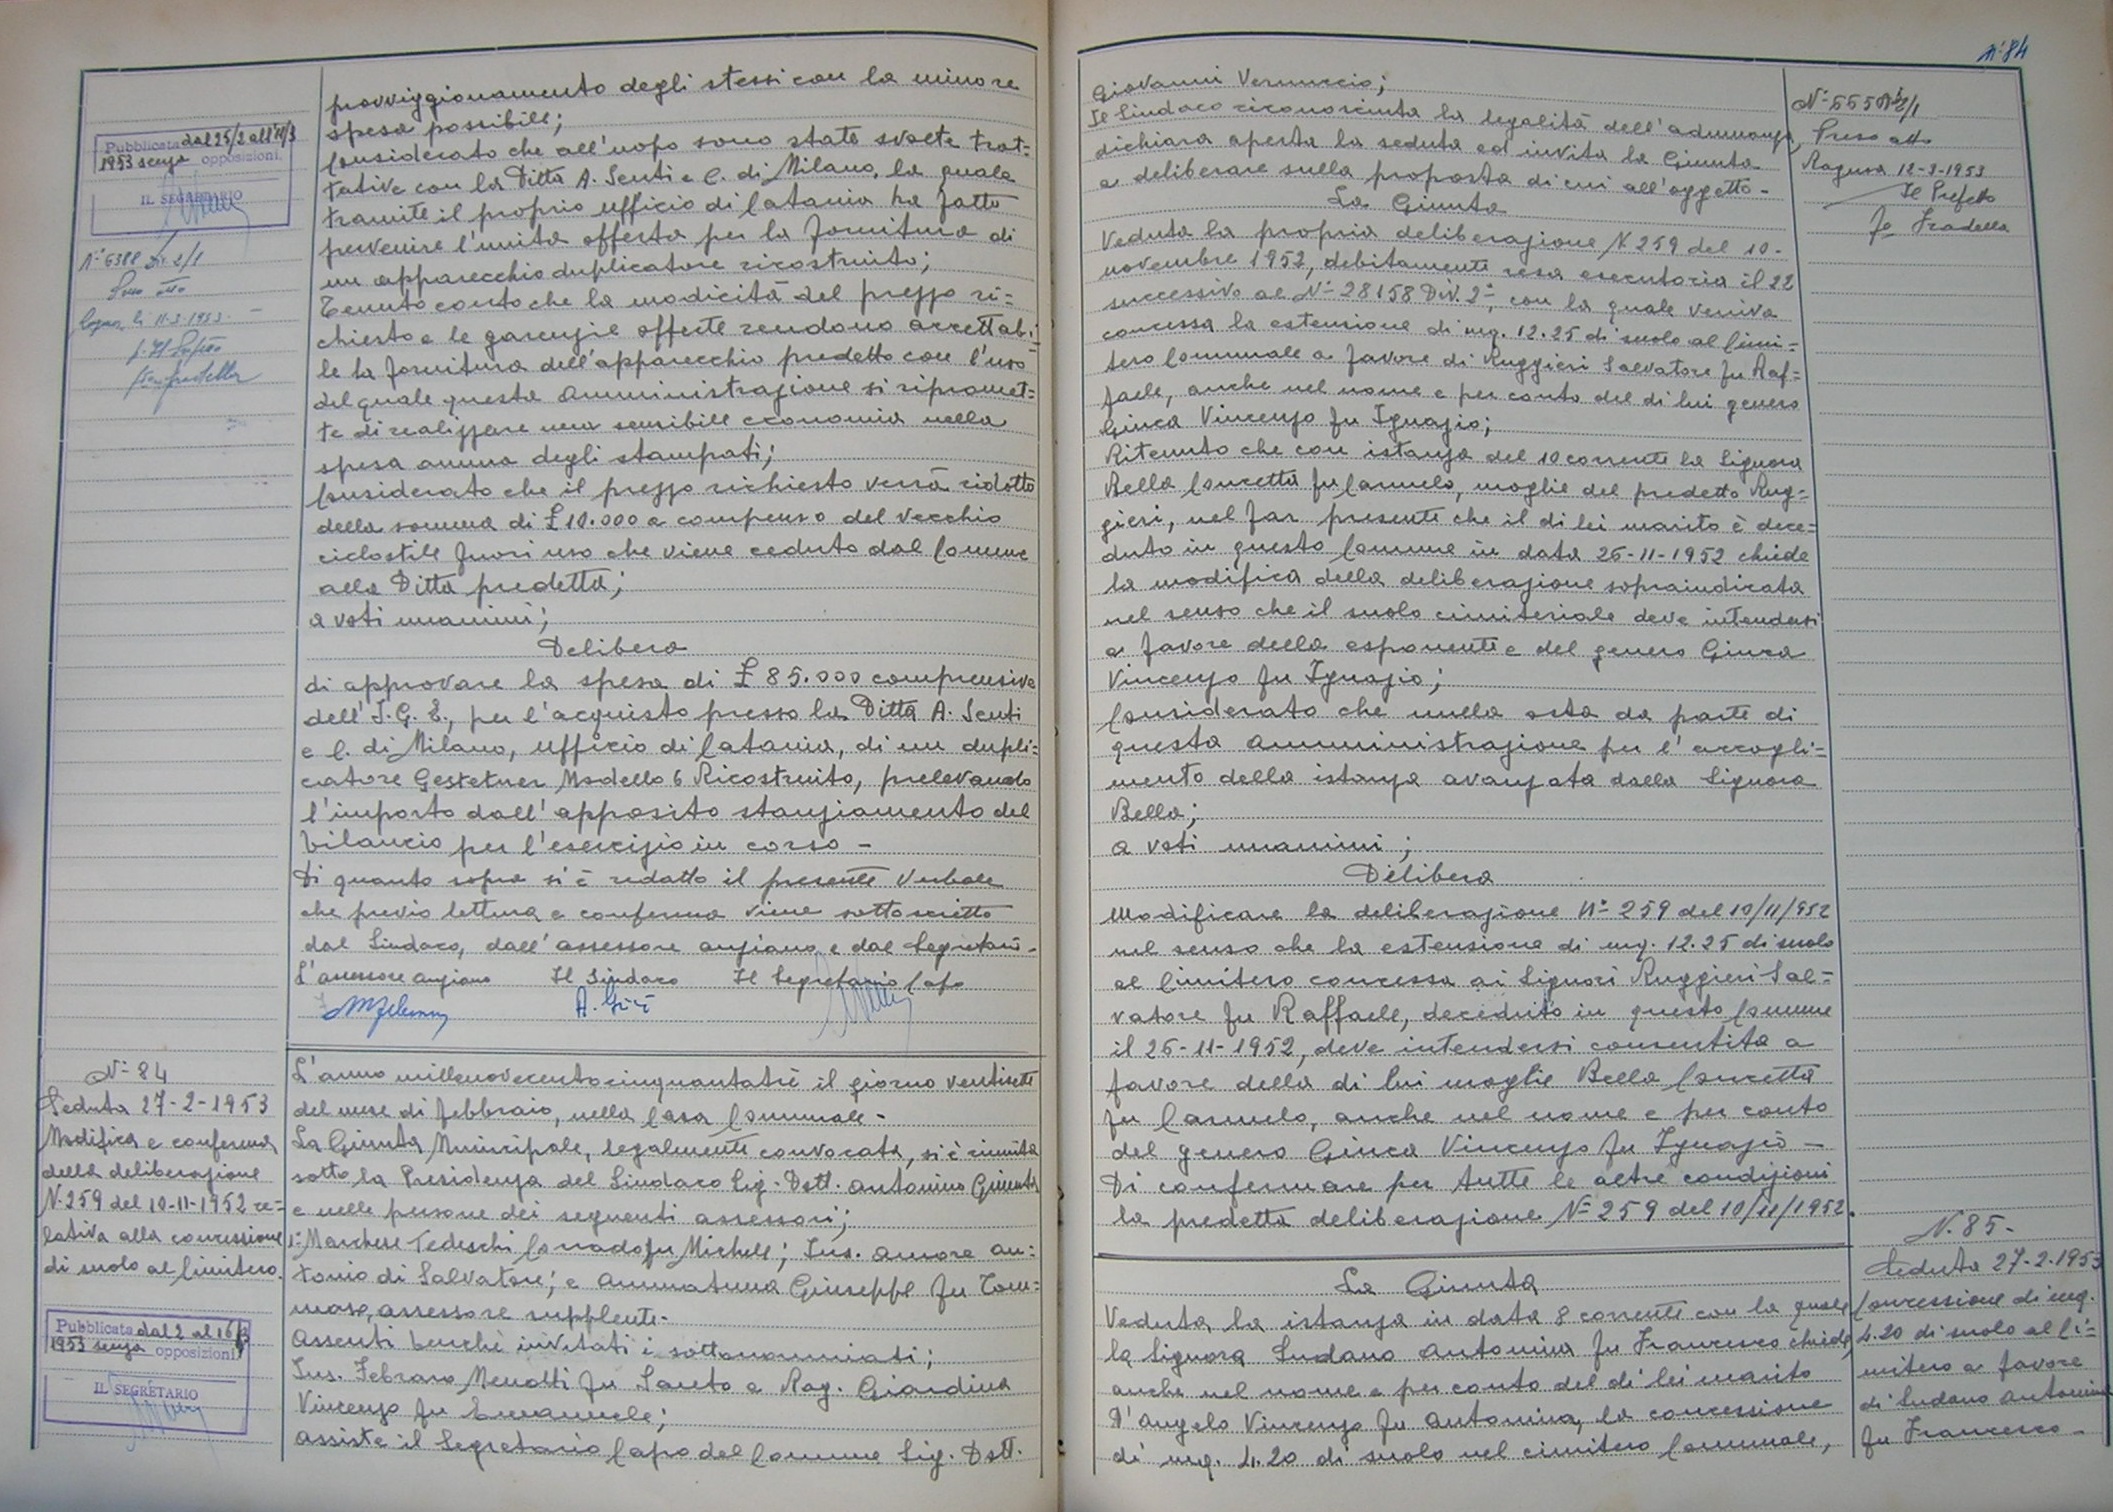 Pubblicata dal 25/2 all'11/3
1953 senza opposizioni.
IL SEGRETARIO
N° 6388 Div 2/1
li 11-3-1953.
provviggionamento degli stessi con la minore
spesa possibile;
Considerato che all'uopo sono state svolte trat=
tative con la Ditta A. Senti e C. di Milano, la quale
tramite il proprio ufficio di Catania ha fatto
pervenire l'unita offerta per la fornitura di
un apparecchio duplicatore ricostruito;
Tenuto conto che la modicità del prezzo ri=
chiesto e le garenzie offerte rendono accettabi=
le la fornitura dell'apparecchio predetto con l'uso
del quale questa Amministrazione si ripromet=
te di realizzare una sensibile economia nella
spesa annua degli stampati;
Considerato che il prezzo richiesto verrà ridotto
della somma di £ 10.000 a compenso del vecchio
ciclostile fuori uso che viene ceduto dal Comune
alla Ditta predetta;
a voti unanimi;
Delibera
di approvare la spesa di £ 85.000 comprensiva
dell'I.G.E., per l'acquisto presso la Ditta A. Senti
e C. di Milano, ufficio di Catania, di un dupli=
catore Gestetner Modello 6 Ricostruito, prelevando
l'importo dall'apposito stanziamento del
bilancio per l'esercizio in corso -
Di quanto sopra si è redatto il presente verbale
che previo lettura e conferma viene sottoscritto
dal Sindaco, dall'assessore anziano e dal Segretario -
L'assessore anziano Il Sindaco Il Segretario Capo
N° 84
Seduta 27-2-1953
Modifica e conferma
della deliberazione
N. 259 del 10-11-1952 re=
lativa alla concessione
di suolo al Cimitero.
Pubblicata dal 2 al 16/3
1953 senza opposizioni
IL SEGRETARIO
L'anno millenovecentocinquantatrè il giorno ventisette
del mese di febbraio, nella Casa Comunale -
La Giunta Municipale, legalmente convocata, si è riunita
sotto la Presidenza del Sindaco Sig. Dott. Antonino Giunta
e nelle persone dei seguenti assessori;
1° Marchese Tedeschi Corrado fu Michele; Ins. Amore An=
tonio di Salvatore; e Ammatuna Giuseppe fu Tom=
maso, assessore supplente.
Assenti benchè invitati i sottonominati;
Ins. Febraro Menotti fu Santo e Rag. Giardina
Vincenzo fu Emanuele;
Assiste il Segretario Capo del Comune Sig. Dott.
N° 84
Giovanni Vernuccio;
Il Sindaco riconosciuta la legalità dell'adunanza
dichiara aperta la seduta ed invita la Giunta
a deliberare sulla proposta di cui all'oggetto -
La Giunta
Veduta la propria deliberazione N 259 del 10-
novembre 1952, debitamente resa esecutoria il 22
successivo al N° 28158 Div. 2°, con la quale veniva
concessa la estensione di mq. 12.25 di suolo al Cimi=
tero Comunale a favore di Ruggieri Salvatore fu Raf=
faele, anche nel nome e per conto del di lui genero
Giuca Vincenzo fu Ignazio;
Ritenuto che con istanza del 10 corrente la Signora
Bella Concetta fu Carmelo, moglie del predetto Rug=
gieri, nel far presente che il di lei marito è dece=
duto in questo Comune in data 26-11-1952 chiede
la modifica della deliberazione sopraindicata
nel senso che il suolo cimiteriale deve intendersi
a favore della esponente e del genero Giuca
Vincenzo fu Ignazio;
Considerato che nulla osta da parte di
questa Amministrazione per l'accogli=
mento della istanza avanzata dalla Signora
Bella;
a voti unanimi;
Delibera
Modificare la deliberazione N° 259 del 10/11/952
nel senso che la estensione di mq. 12.25 di suolo
al Cimitero concessa ai Signori Ruggieri Sal=
vatore fu Raffaele, deceduto in questo Comune
il 26-11-1952, deve intendersi consentita a
favore della di lui moglie Bella Concetta
fu Carmelo, anche nel nome e per conto
del genero Giuca Vincenzo fu Ignazio -
Di confermare per tutte le altre condizioni
la predetta deliberazione N° 259 del 10/11/1952.
La Giunta
Veduta la istanza in data 8 corrente con la quale
la Signora Sudano Antonina fu Francesco chiede,
anche nel nome e per conto del di lei marito
D'Angelo Vincenzo fu Antonino, la concessione
di mq. 4.20 di suolo nel cimitero Comunale,
Preso atto
Ragusa 12-3-1953
Il Prefetto
Fo Fradella
N. 85.
Seduta 27-2-1953
Concessione di mq.
4.20 di suolo al Ci=
mitero a favore
di Sudano Antonina
fu Francesco -